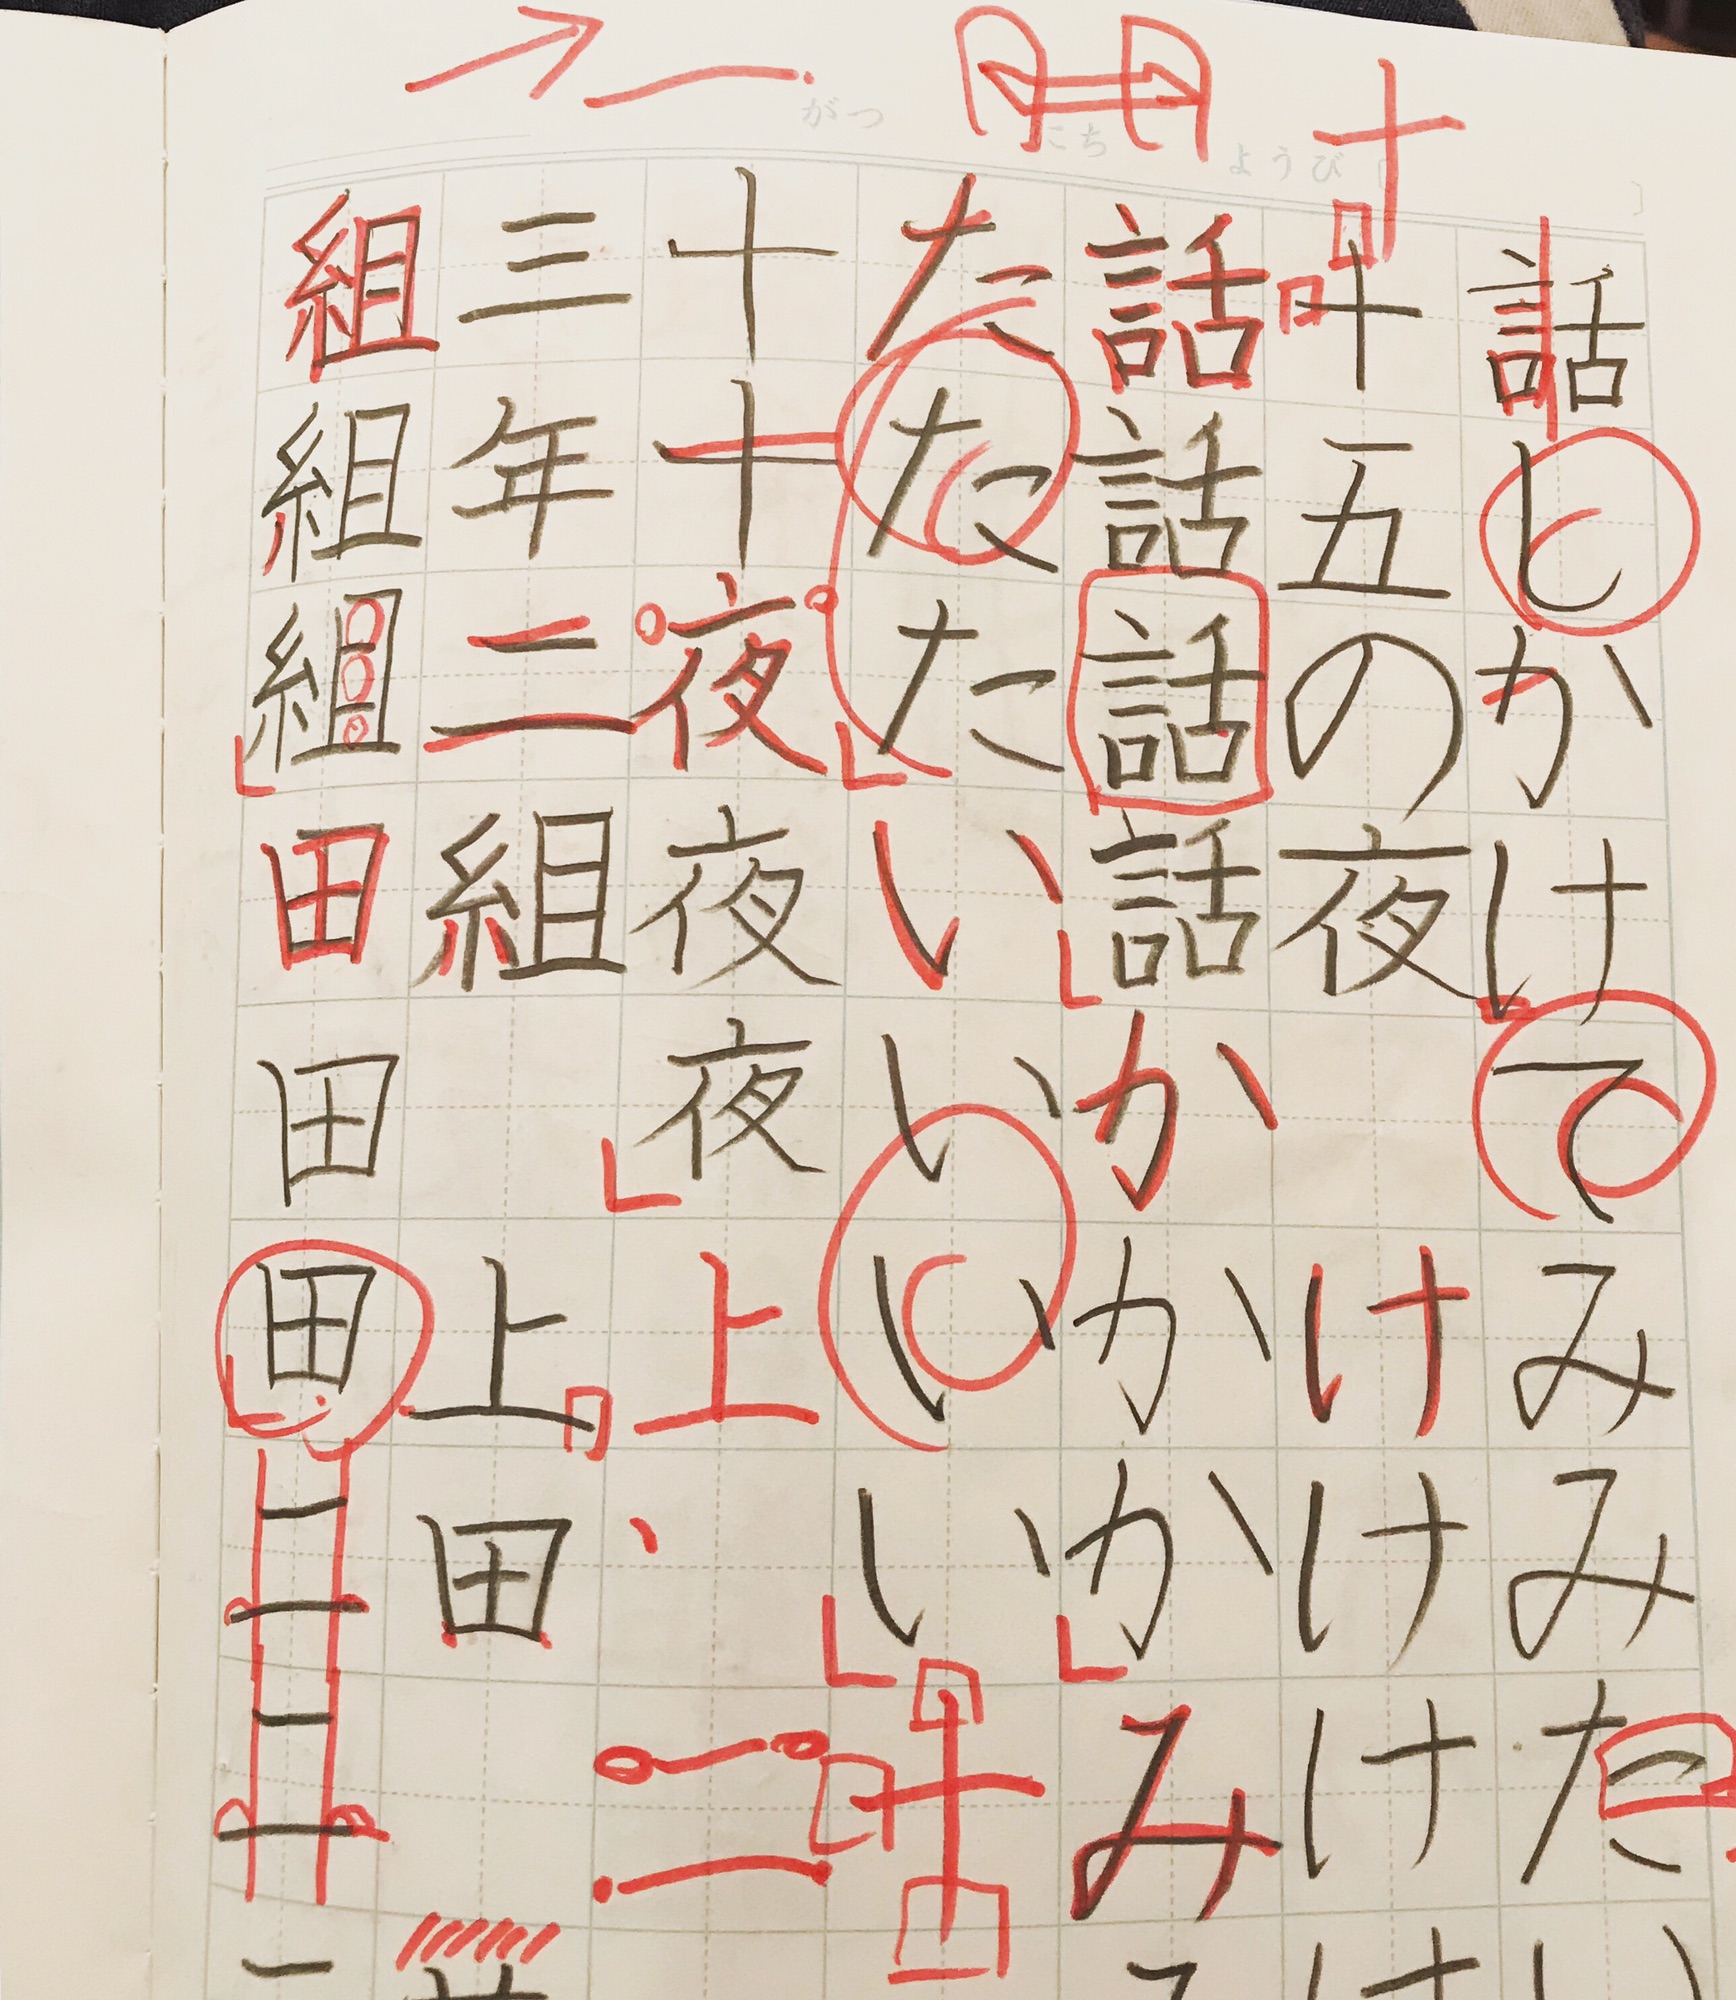 がつ にち ようび
十
話しかけてみみたい
十五の夜 けけけけ
話話話話かかかみ
たたたいいいい十
十十夜夜夜上 二
三年二組 上田
組組組田田田二二